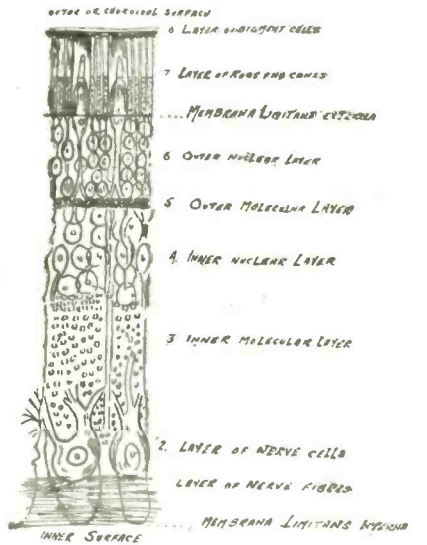 OUTER OR CHOROIDAL SURFACE
8 LAYER OF PIGMENT CELLS
7 LAYER OF RODS AND CONES
MEMBRANA LIMITANS EXTERNA
6 OUTER NUCLEAR LAYER
5 OUTER MOLECULAR LAYER
4. INNER NUCLEAR LAYER
3 INNER MOLECULAR LAYER
2. LAYER OF NERVE CELLS
LAYER OF NERVE FIBRES
MEMBRANA LIMITANS INTERNA
INNER SURFACE